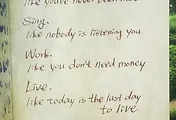 like you've never been
Sing,
like nobody is listening you
Work,
like you don't need money
Live,
like today is the last day
to live.